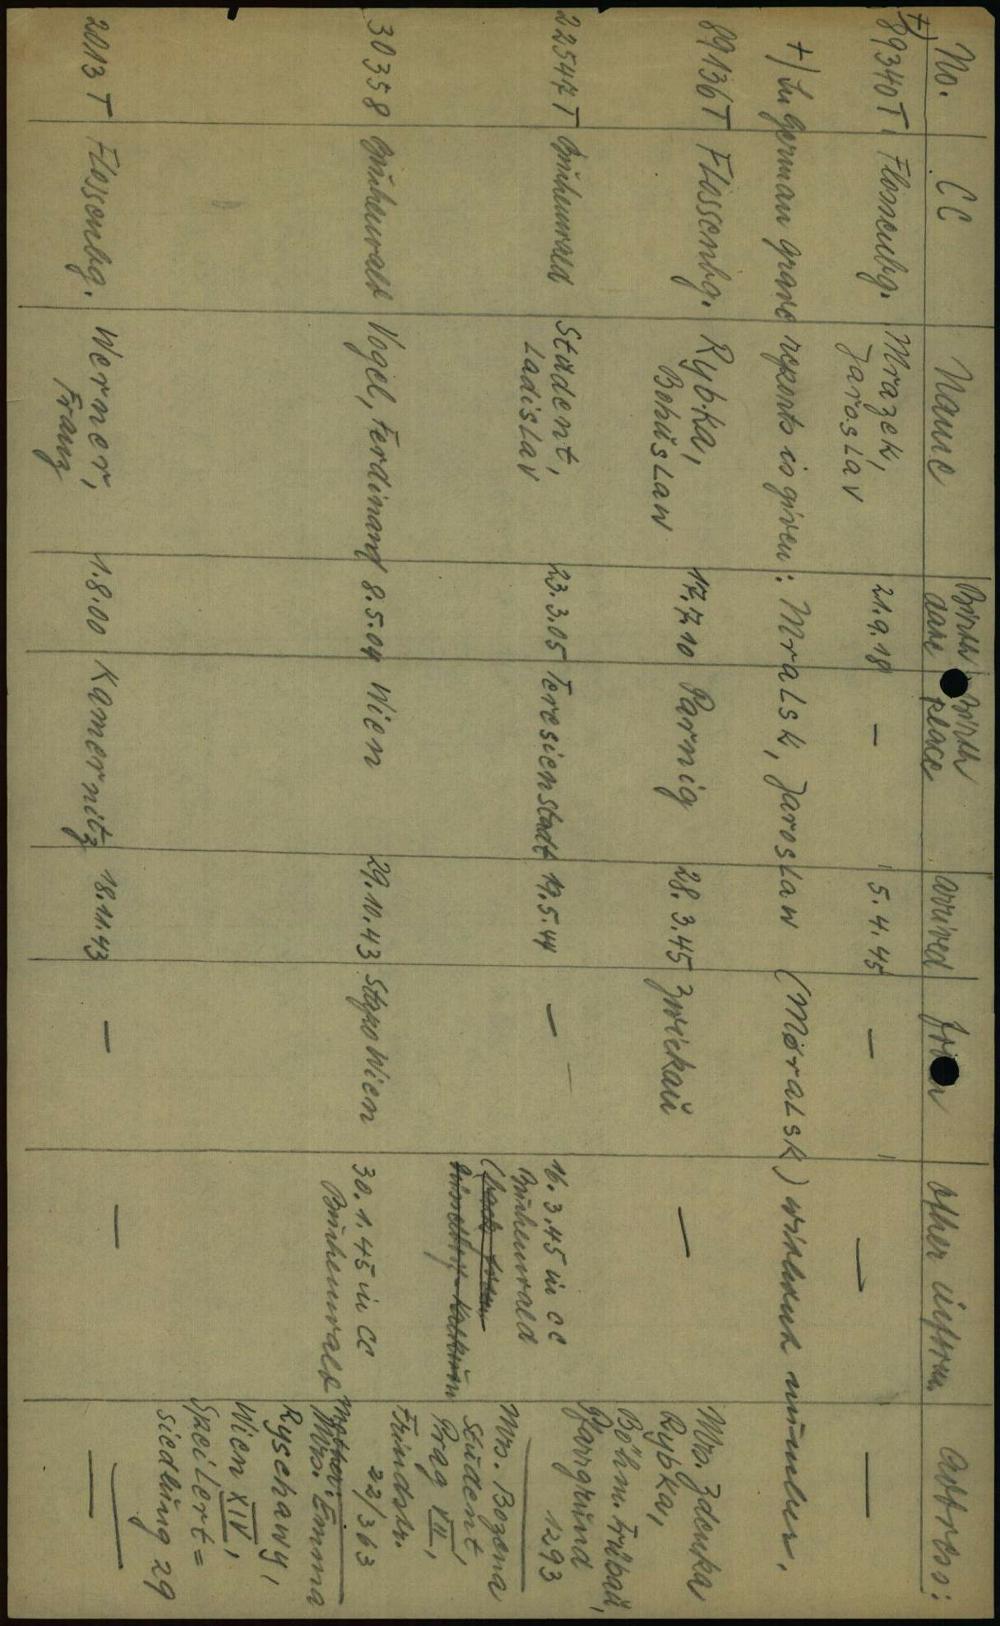 No. CC Name Birth date Birth place arrived from other inform. address:
+) 89340 T. Flossenbg. Mrazek, Jaroslav 21.9.18 — 5.4.45 — — —
+) In german grave reports is given: Mralsk, Jaroslaw (Moralsk) without number.
89136 T Flossenbg. Rybka, Bohuslaw 17.7.10 Parnig 28.3.45 Zwickau — Mrs. Zdenka Rybka, Böhm. Trübau, Pfarrgrund 1293
22547 T Buchenwald Student, Ladislav 23.3.05 Teresienstadt 19.5.44 — 16.3.45 in cc Buchenwald Mrs. Bozena Student, Prag VII, 22/363
30358 Buchenwald Vogel, Ferdinand 8.5.04 Wien 29.10.43 Stapo Wien 30.1.45 in CC Buchenwald Mrs. Emma Ryschawy, Wien XIV, Speilert= siedlung 29
2013 T Flossenbg. Werner, Franz 1.8.00 Kamernitz 18.11.43 — — —